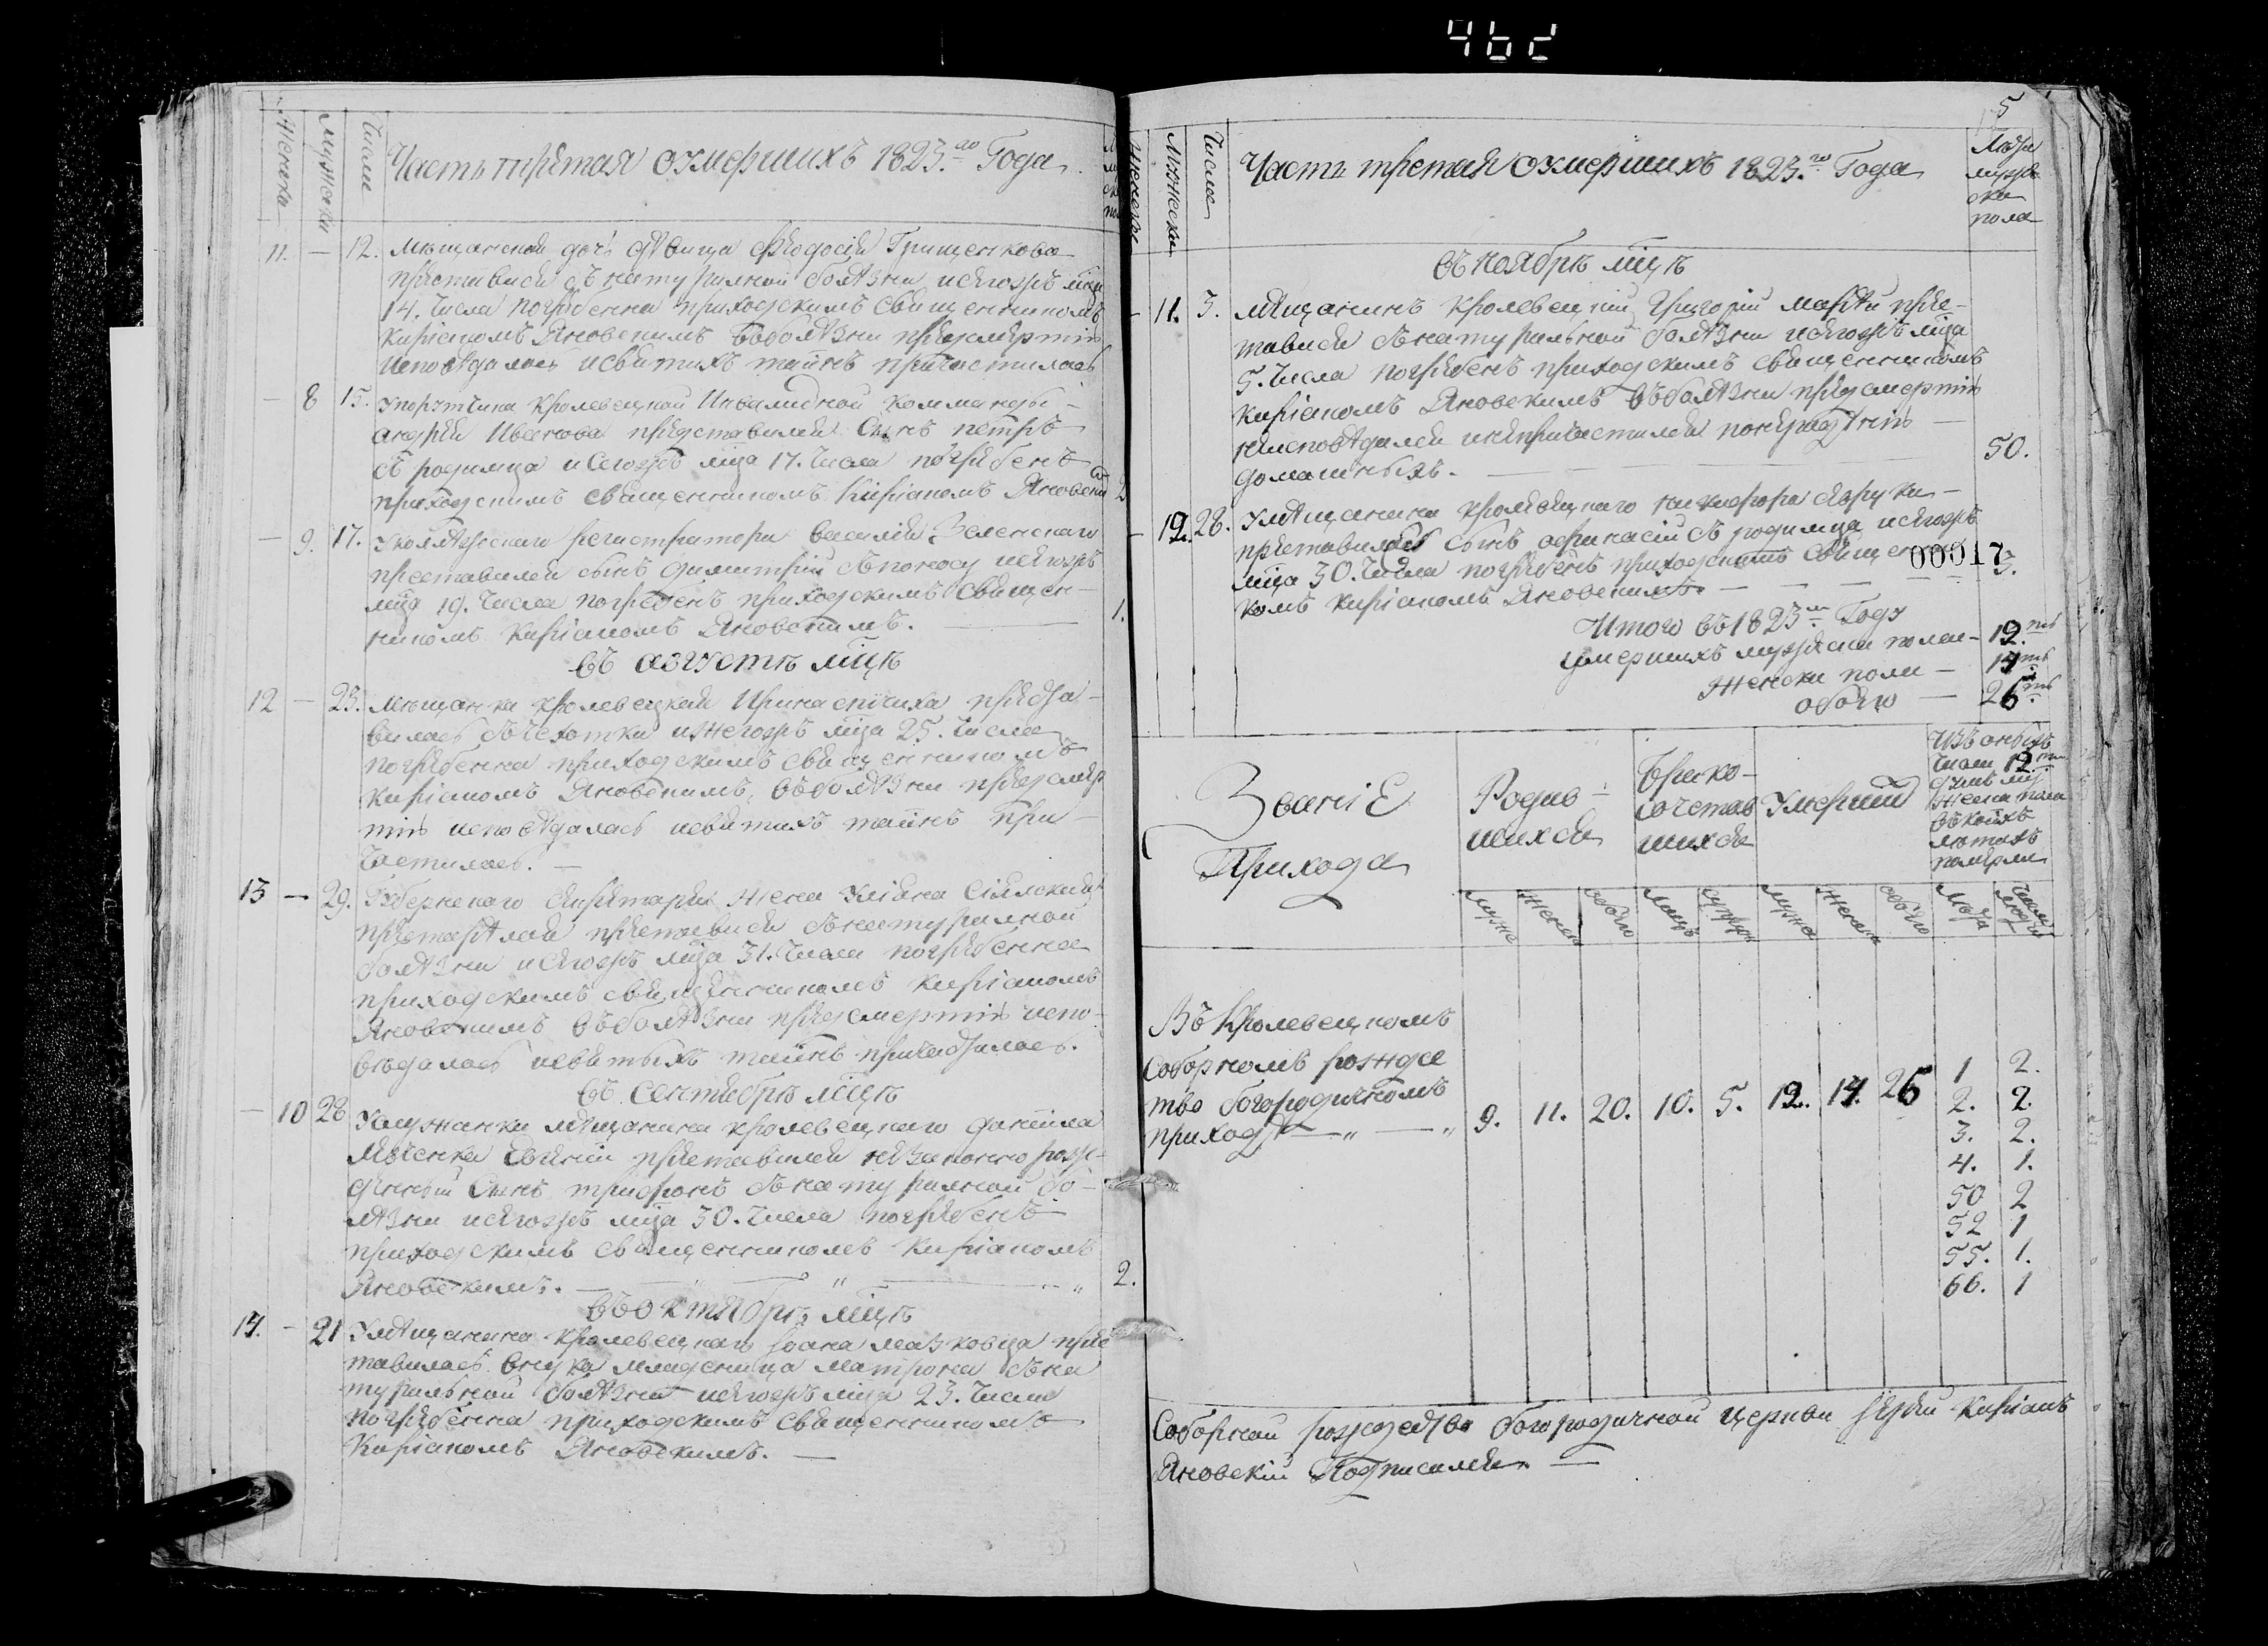 462
Женска
Мужеска
Число
Часть третая оумершихъ 1823.го Года
11. — 12. Мещанской дочь девица Феодосія Грищенкова
преставися съ натуралной болезни и сегожъ мца
14. Числа погребенна приходскимъ священникомъ
Кипріаномъ Яновскимъ въ болезни предсмертнія
исповедалась и святихъ таинъ причастилась
— 8 15. У порутчика Кролевецкой Инвалидной Комманды
Андрея Иванова представился Сынъ петръ
съ родимца и Сегожъ мца 17. Числа погребенъ
приходскимъ Священникомъ Кипріаномъ Яновски
— 9. 17. У коллежскаго регистратора василія Зеленскаго
преставился сынъ димитрій съ поносу и сегожъ
мца 19. Числа погребенъ приходскимъ Священ-
никомъ Кипріаномъ Яновскимъ. 1.
въ августе мце
12 — 23. Мещанка Кролевецкая Ирина преста-
вилась съ чехотки и тогожъ мца 25. Числа
погребенна приходскимъ священникомъ
Кипріаномъ Яновскимъ, въ болезни предсмер
тнія исповедалась и святихъ таинъ при-
частилась. —
13 — 29. Губернского Секретаря Жена Уліана
преставися съ натуралной
болезни и сегожъ мца 31. Числа погребенна
приходскимъ священникомъ Кипріаномъ
Яновскимъ въ болезни предсмертнія испо-
ведалась и святыхъ таинъ причащалась.
въ Сентябре мце
— 10 28 мещанина кролевецкаго даніила
преставился незаконно рож-
денный Сынъ трифонъ съ натуралной бо-
лезни и сегожъ мца 30. Числа погребенъ
приходскимъ священникомъ Кипріаномъ
Яновскимъ. — 2.
въ октябре мце
14. — 21 У мещанина Кролевецкаго Іоана прес
тавилась внука младеница Матрона съ на
туральной болезни и сегожъ мца 23. Числа
погребенна приходскимъ Священникомъ
Кипріаномъ Яновскимъ. —
5
Женска
Мужеска
Число
Часть третая оумершихъ 1823.го Года
Лета
мужс
ска
пола
въ ноябре мце
— 11. 3. Мещанинъ Кролевецкій Григорій прес-
тавися съ натуральной болезни и сегожъ мца
5. Числа погребенъ приходскимъ священникомъ
Кипріаномъ Яновскимъ въ болезни предсмертнія
неисповедался и непричастился по нерадению
домашныхъ. — 50.
— 12. 28. У мещанина кролевецкаго никифора
преставился Сынъ афанасій съ родимца и сегожъ
мца 30. Числа погребенъ приходскимъ Священни
комъ Кипріаномъ Яновскимъ. — 3.
00017
Итого въ 1823м Году
умершихъ мужеска пола — 12.
Женска пола — 14
обоего — 26
Званіе
Прихода
Родив-
шихся
Брако-
сочетав
шихся
Умерший
Изъ оныхъ
числа 12
душъ му
жеска пола
въ коихъ
летахъ
померли
мужс
женска
обоего
лицъ
мужс
женска
обоего
Лета
Число
Въ Кролевецкомъ
Соборномъ рождес
тво богородичномъ
приходе — „ — „ 9. 11. 20. 10. 5. 12. 14. 26
1 2.
2. 2.
3. 2.
4. 1.
50 2
52 1
55. 1.
66. 1
Соборной рождество богородичной церкви Іерей Кипріанъ
Яновскій Подписался —